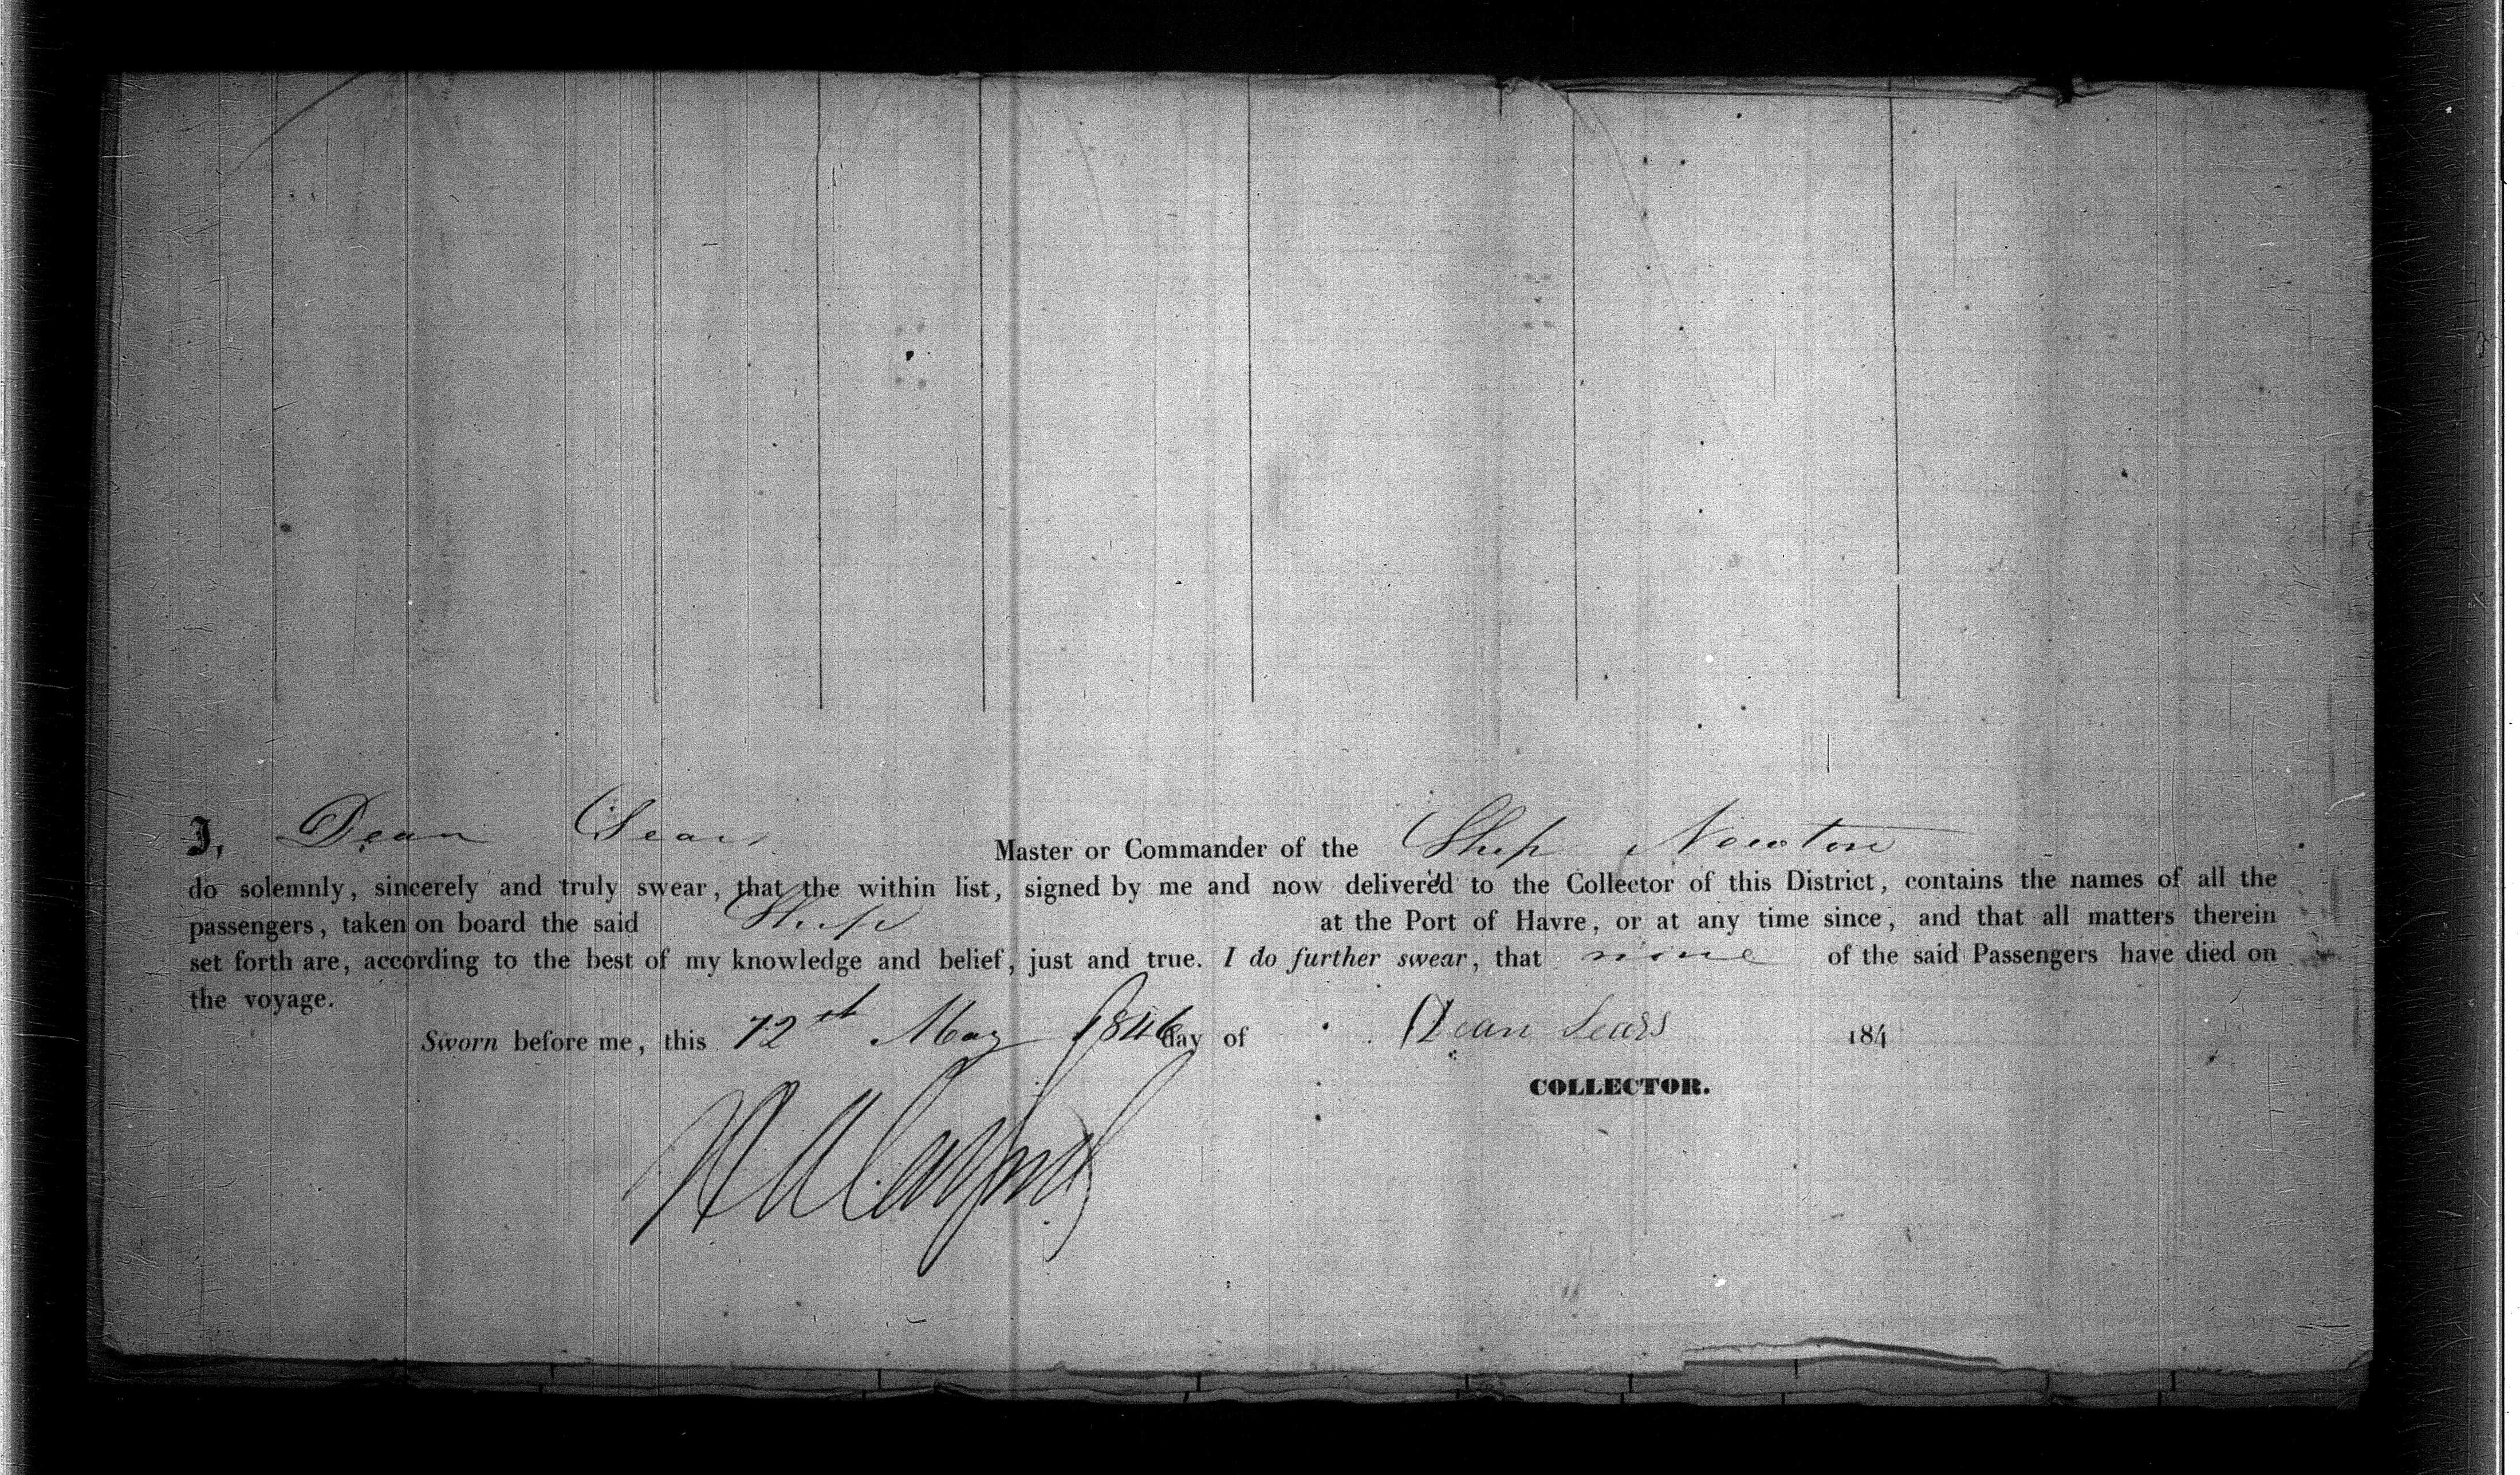 I, Dean Sears Master or Commander of the Ship Newton
do solemnly, sincerely and truly swear, that the within list, signed by me and now delivered to the Collector of this District, contains the names of all the
passengers, taken on board the said Ship at the Port of Havre, or at any time since, and that all matters therein
set forth are, according to the best of my knowledge and belief, just and true. I do further swear, that none of the said Passengers have died on
the voyage.
Sworn before me, this 12th May 1846 day of Dean Sears 184
COLLECTOR.